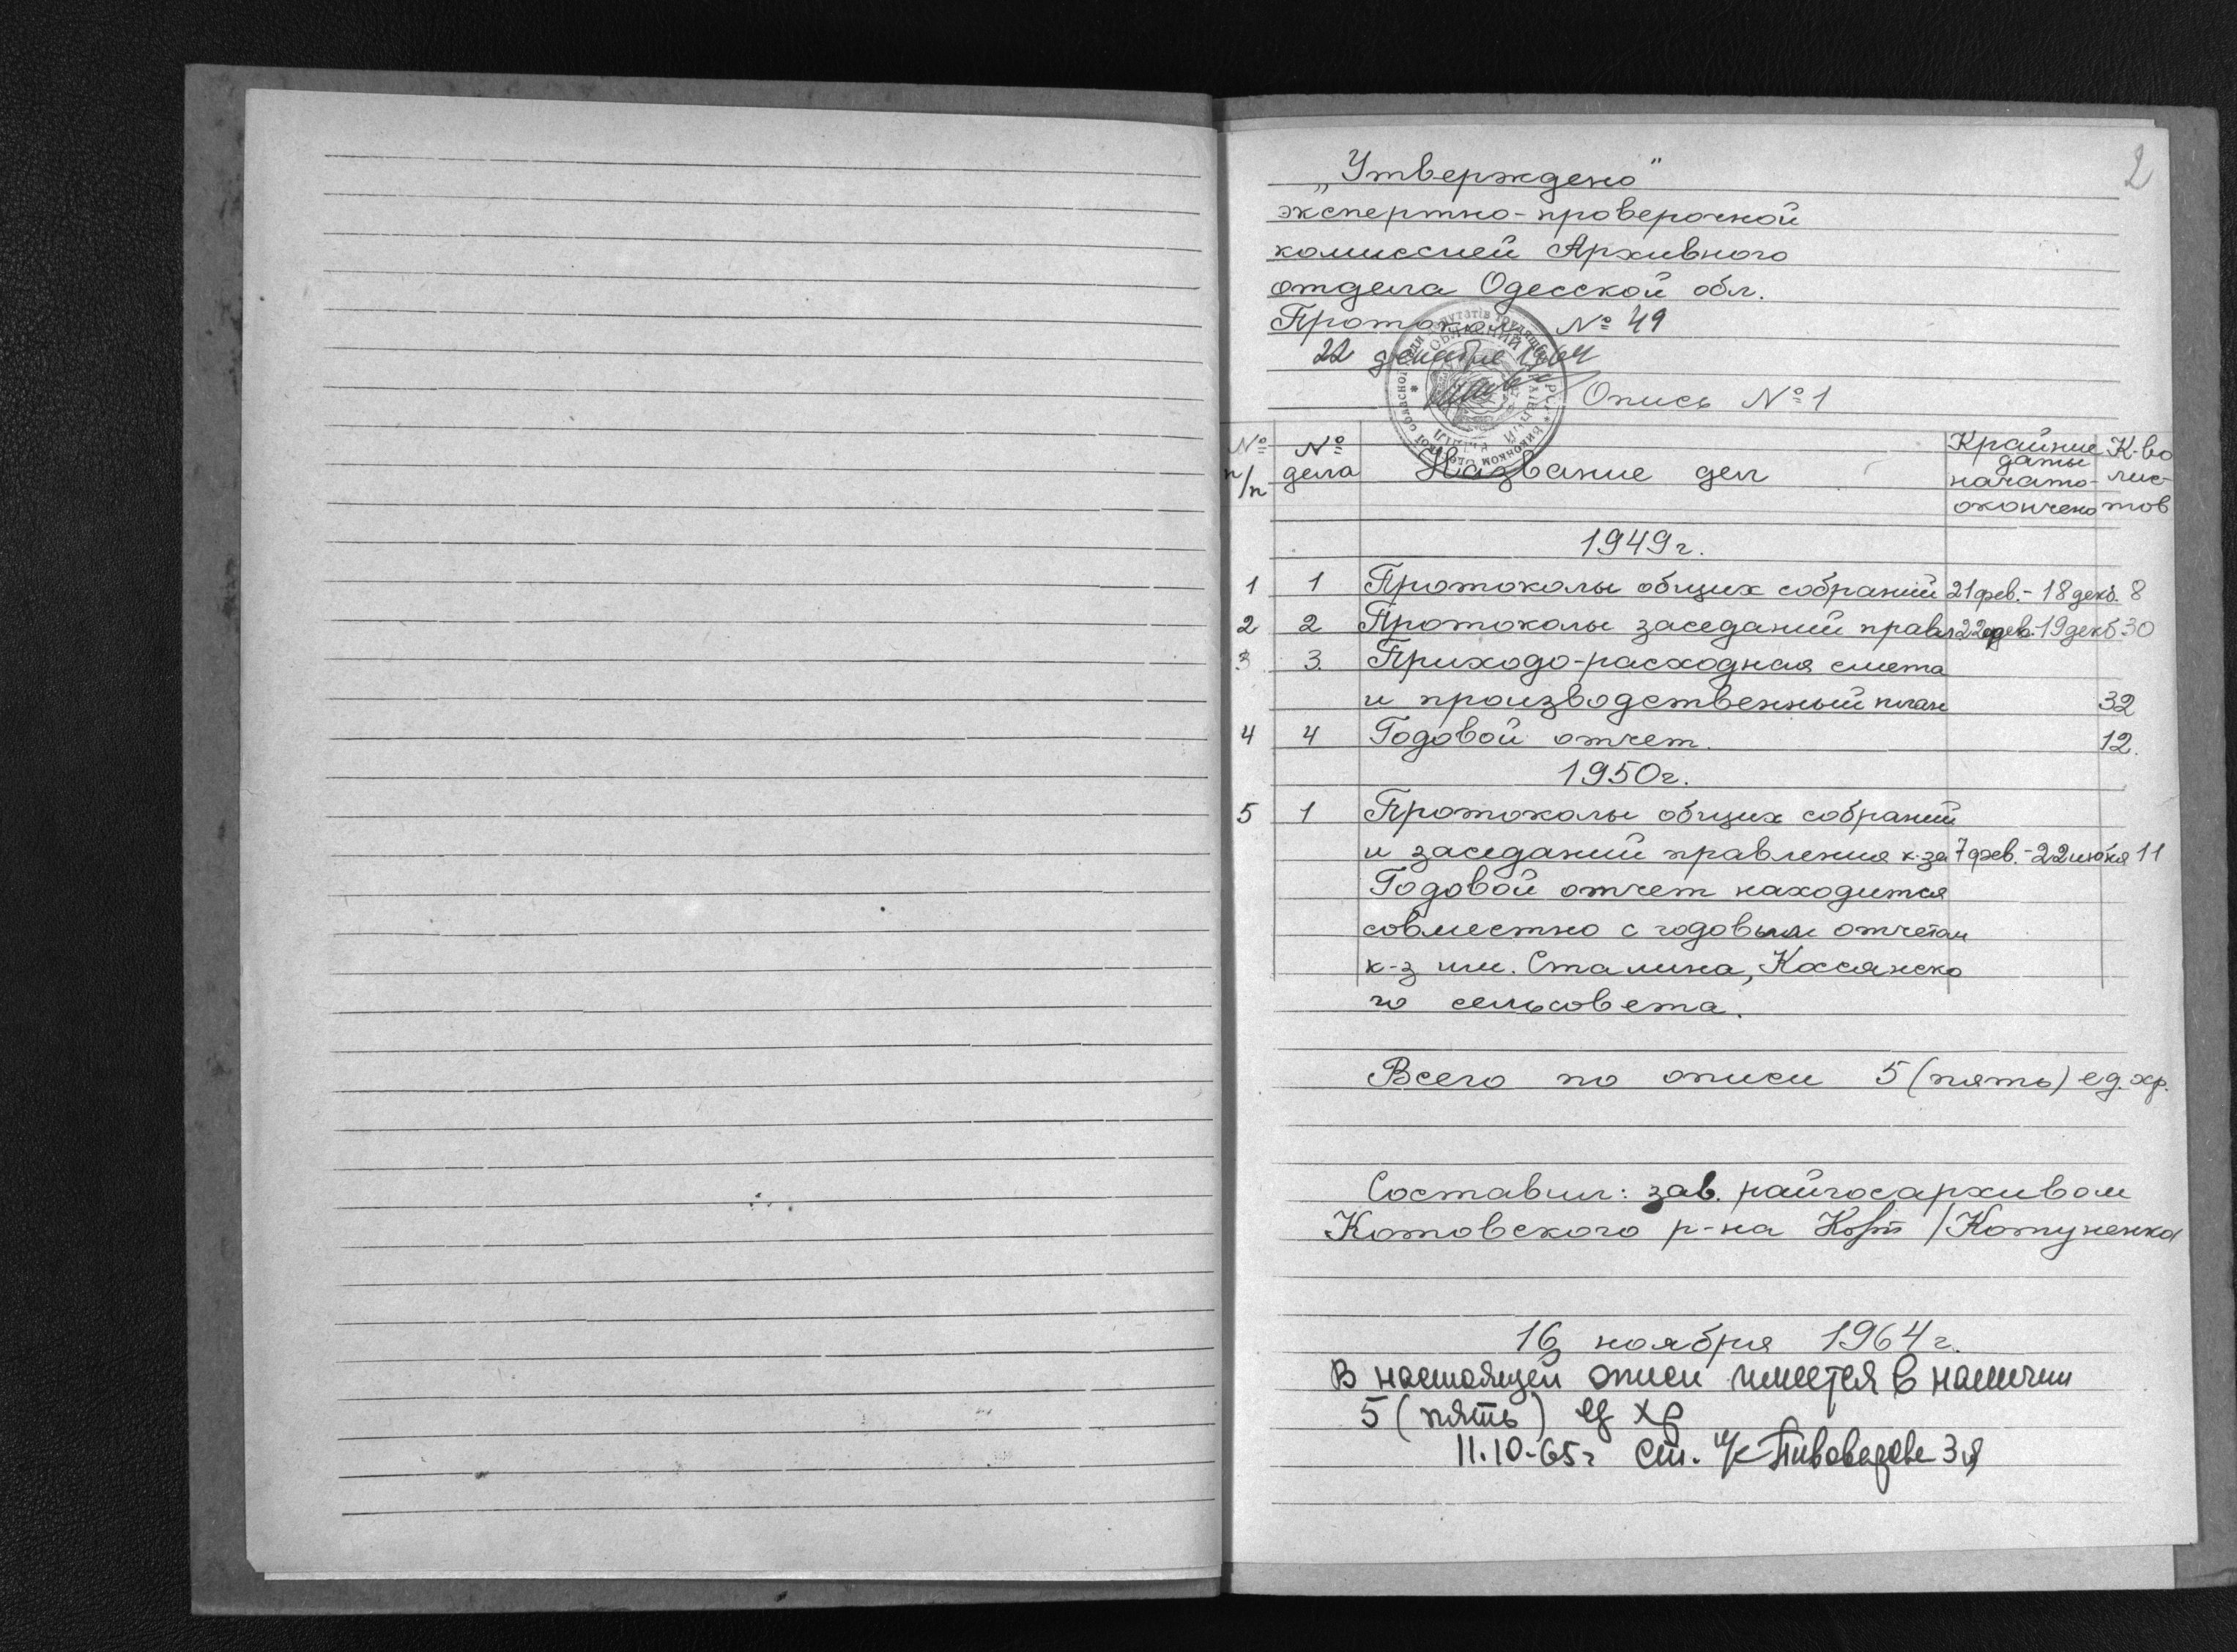 2
„Утверждено"
экспертно-проверочной
комиссией Архивного
отдела Одесской обл.
Протокол № 49
22 декабря 1964
Опись № 1
№ п/п | № дела | Название дел | Крайние даты начато-окончено | К-во лис-тов
1949 г.
1 1 Протоколы общих собраний 21 фев. - 18 декб. 8
2 2 Протоколы заседаний правл 22 фев. 19 декб 30
3 3. Приходо-расходная смета
и производственный план 32
4 4 Годовой отчет. 12.
1950 г.
5 1 Протоколы общих собраний
и заседаний правления к-за 7 фев. - 22 июня 11
Годовой отчет находится
совместно с годовым отчетом
к-з им. Сталина, Косянско
го сельсовета.
Всего по описи 5 (пять) ед. хр.
Составил: зав. райгосархивом
Котовского р-на /Котуненко
16 ноября 1964 г.
В настоящей описи имеется в наличии
5 (пять) ед хр
11.10-65 г Ст. н/с Пивоварова